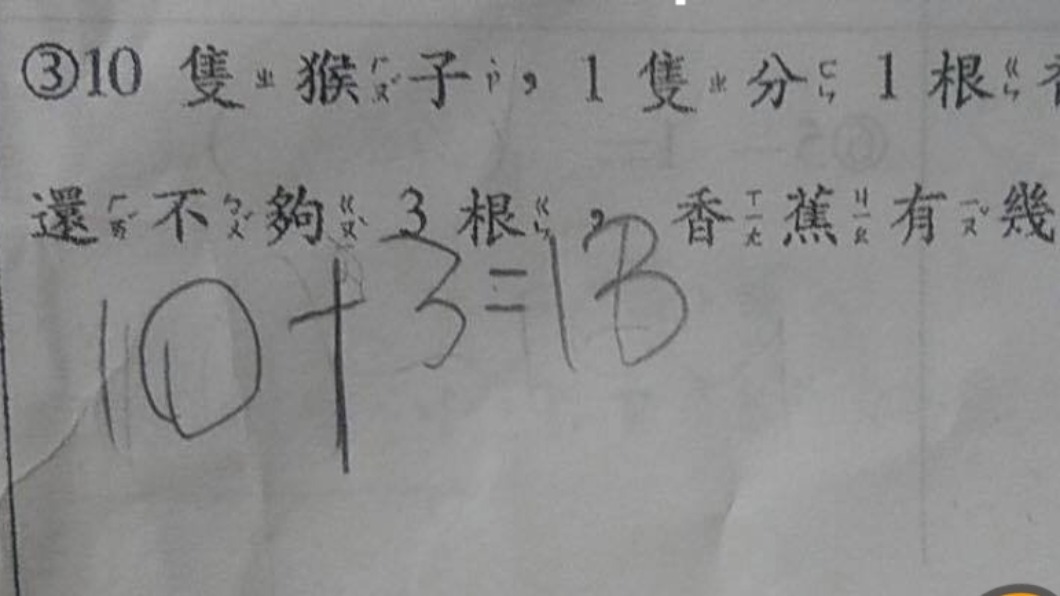 ③10 隻ㄓ猴ㄏㄡˊ子ㄗ˙，1 隻ㄓ分ㄈㄣ 1 根ㄍㄣ
還ㄏㄞˊ不ㄅㄨˊ夠ㄍㄡˋ 3 根ㄍㄣ，香ㄒㄧㄤ蕉ㄐㄧㄠ有ㄧㄡˇ幾
10+3=13